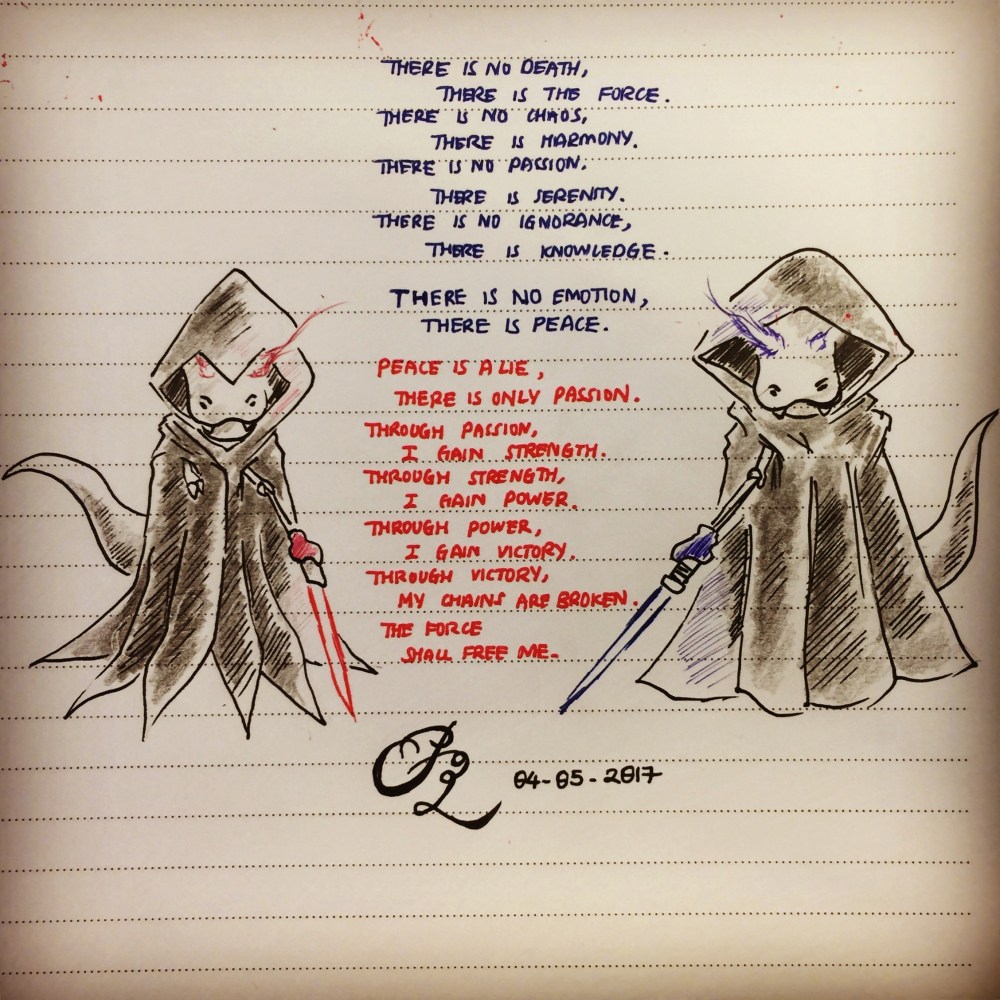 THERE IS NO DEATH,
THERE IS THE FORCE.
THERE IS NO CHAOS,
THERE IS HARMONY.
THERE IS NO PASSION.
THERE IS SERENITY.
THERE IS NO IGNORANCE,
THERE IS KNOWLEDGE.
THERE IS NO EMOTION,
THERE IS PEACE.
PEACE IS A LIE,
THERE IS ONLY PASSION.
THROUGH PASSION,
I GAIN STRENGTH.
THROUGH STRENGTH,
I GAIN POWER.
THROUGH POWER,
I GAIN VICTORY.
THROUGH VICTORY,
MY CHAINS ARE BROKEN.
THE FORCE
SHALL FREE ME.
04-05-2017